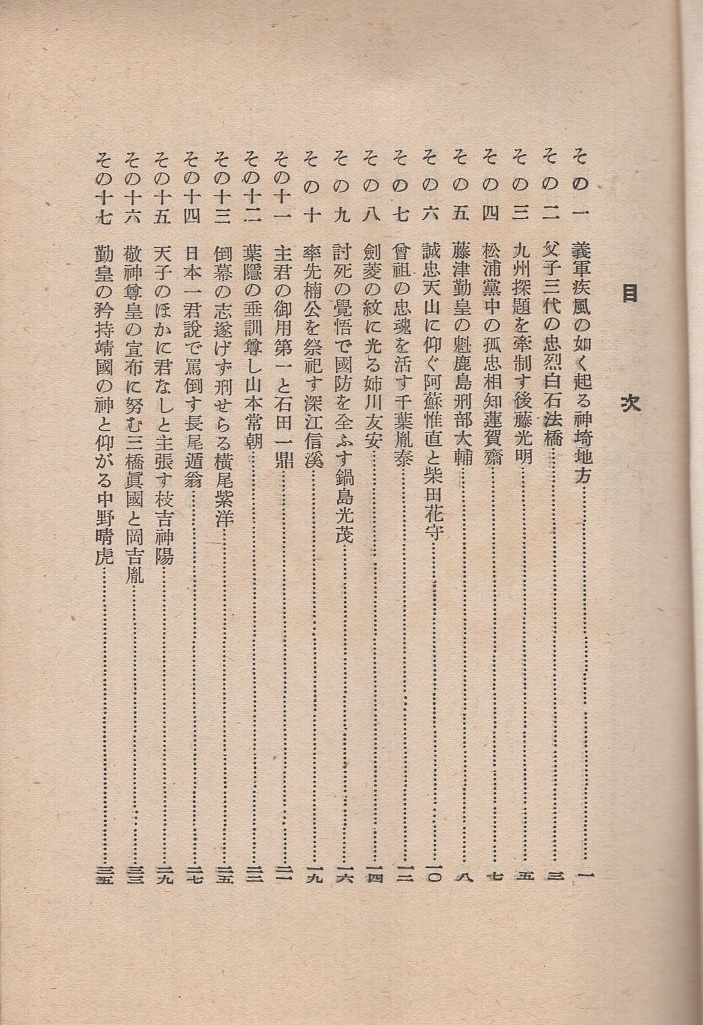 目次
その一 義軍疾風の如く起る神埼地方 一
その二 父子三代の忠烈白石法橋 三
その三 九州探題を牽制す後藤光明 五
その四 松浦黨中の孤忠相知蓮賀齋 七
その五 藤津勤皇の魁鹿島刑部大輔 八
その六 誠忠天山に仰ぐ阿蘇惟直と柴田花守 一〇
その七 曾祖の忠魂を活す千葉胤泰 一二
その八 劍菱の紋に光る姉川友安 一四
その九 討死の覺悟で國防を全ふす鍋島光茂 一六
その十 率先楠公を祭祀す深江信溪 一九
その十一 主君の御用第一と石田一鼎 二一
その十二 葉隱の垂訓尊し山本常朝 二三
その十三 倒幕の志遂げず刑せらる横尾紫洋 二五
その十四 日本一君說で罵倒す長尾遁翁 二七
その十五 天子のほかに君なしと主張す枝吉神陽 二九
その十六 敬神尊皇の宣布に努む三橋眞國と岡吉胤 三三
その十七 勤皇の矜持靖國の神と仰がる中野晴虎 三五